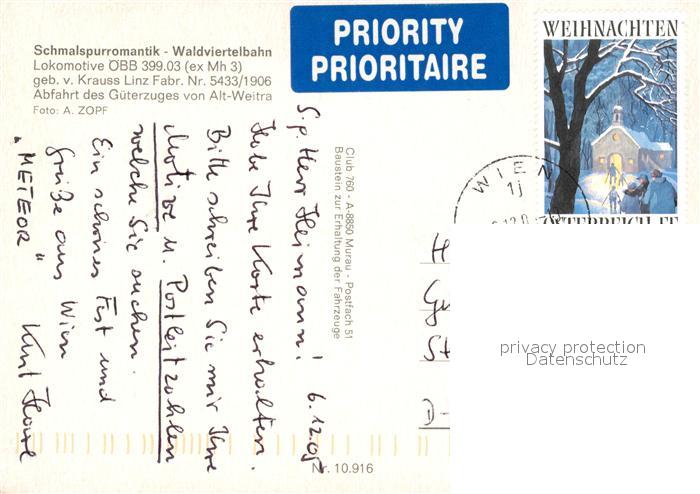 Schmalspurromantik - Waldviertelbahn
Lokomotive ÖBB 399.03 (ex Mh 3)
geb. v. Krauss Linz Fabr. Nr. 5433/1906
Abfahrt des Güterzuges von Alt-Weitra
Foto: A. ZOPF
PRIORITY
PRIORITAIRE
WEIHNACHTEN
WIEN
1j
ÖSTERREICH
S.g. Herr Heimann! 6.12.05
Habe Ihre Karte erhalten.
Bitte schreiben Sie mir Ihre
Motive u. Postleitzahlen
welche Sie suchen.
Ein schönes Fest und
Grüße aus Wien
"METEOR" Kurt
Club 760 - A-8850 Murau - Postfach 51
Baustein zur Erhaltung der Fahrzeuge
H
St
D-
privacy protection
Datenschutz
Nr. 10.916